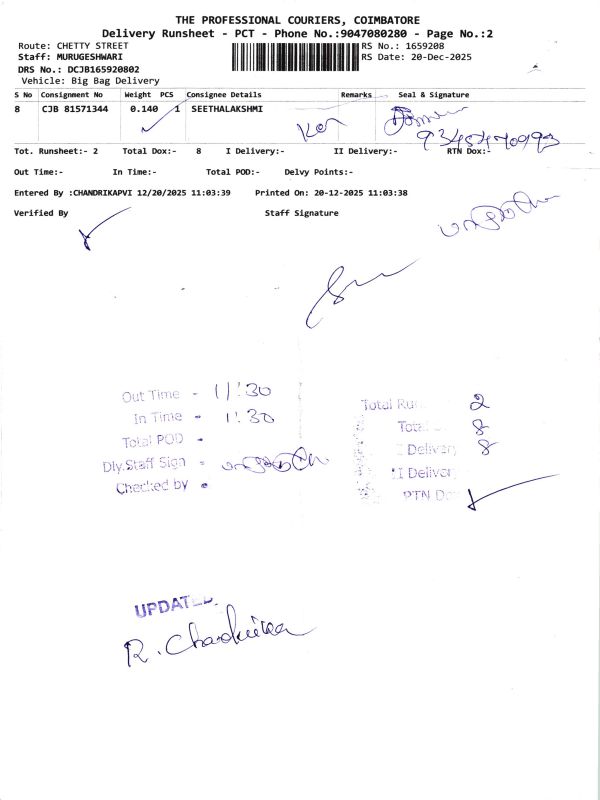 THE PROFESSIONAL COURIERS, COIMBATORE
Delivery Runsheet - PCT - Phone No.:9047080280 - Page No.:2
Route: CHETTY STREET RS No.: 1659208
Staff: MURUGESHWARI RS Date: 20-Dec-2025
DRS No.: DCJB165920802
Vehicle: Big Bag Delivery
S No Consignment No Weight PCS Consignee Details Remarks Seal & Signature
8 CJB 81571344 0.140 1 SEETHALAKSHMI
Tot. Runsheet:- 2 Total Dox:- 8 I Delivery:- II Delivery:- RTN Dox:-
Out Time:- In Time:- Total POD:- Delvy Points:-
Entered By :CHANDRIKAPVI 12/20/2025 11:03:39 Printed On: 20-12-2025 11:03:38
Verified By Staff Signature
Out Time - 11:30
In Time - 1:30
Total POD -
Dly.Staff Sign -
Checked by -
Total Run 2
Total 8
I Delivery 8
II Delivery
RTN Do
UPDATED